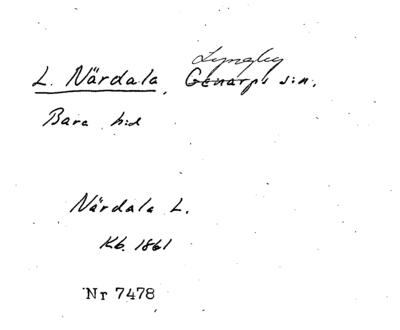 Lyngby
L. Närdala, Genarps s:n,
Bara h:d
Närdala L.
Kb. 1861
Nr 7478